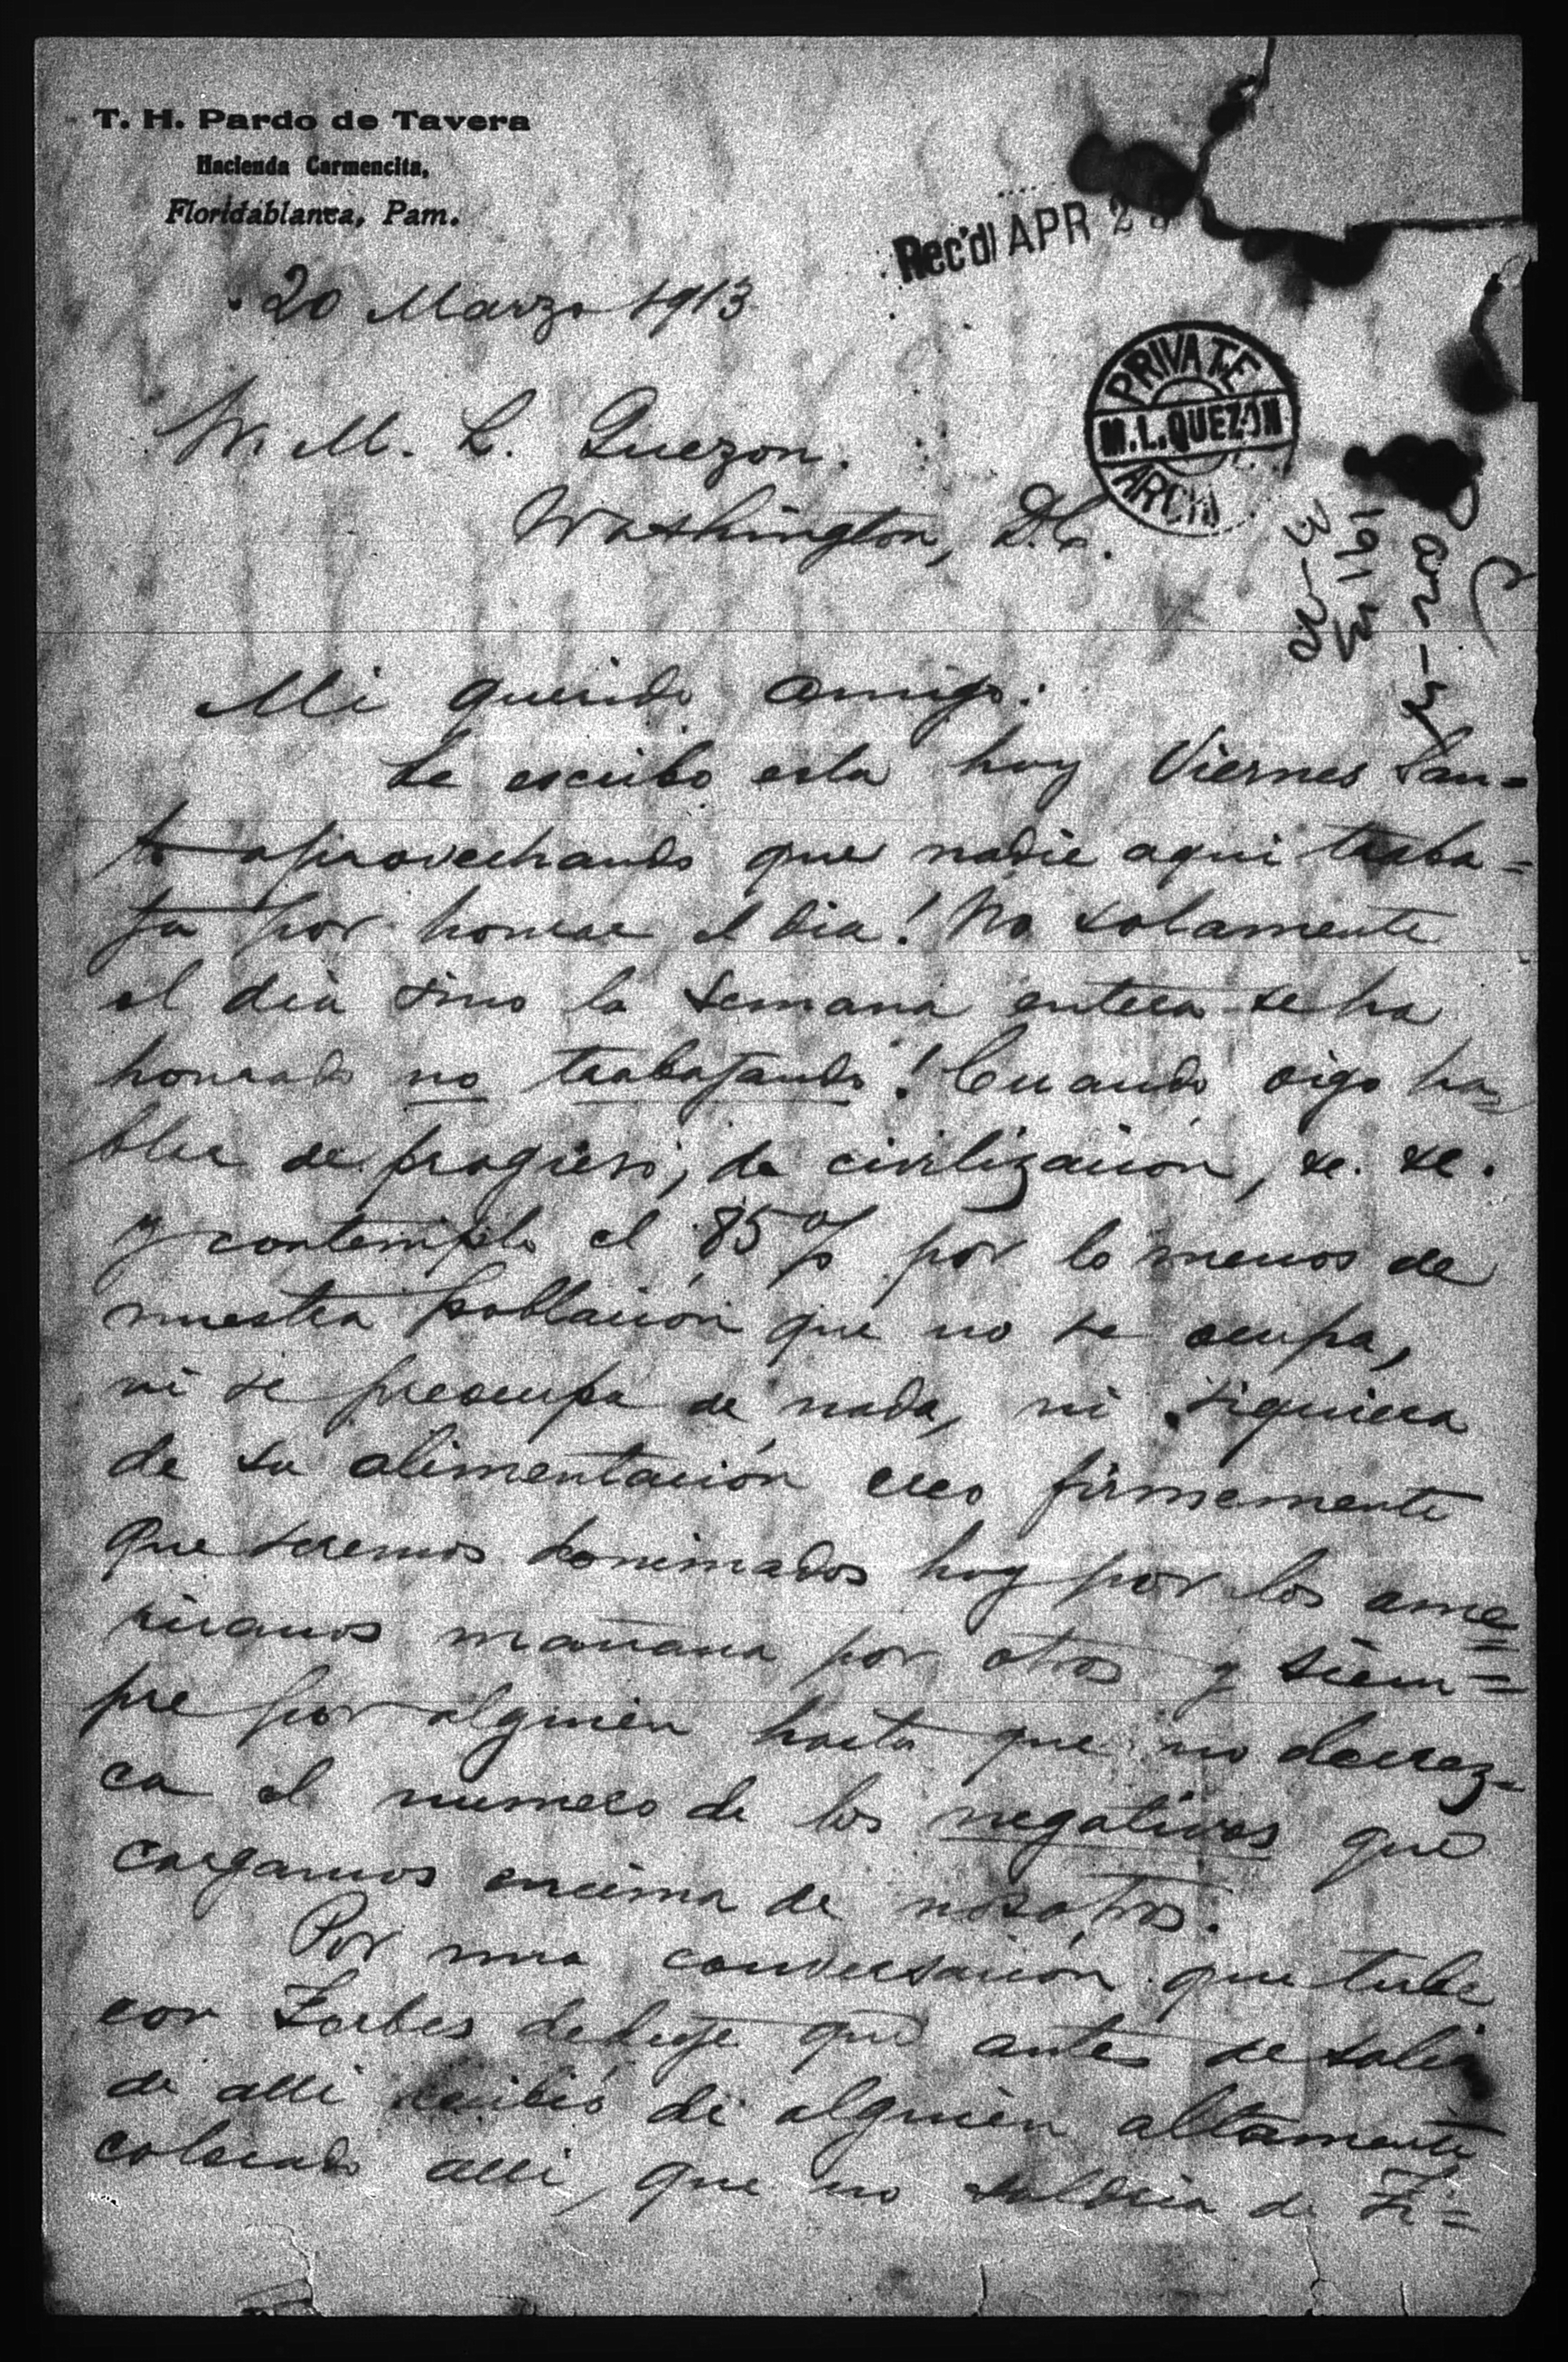 T. H. Pardo de Tavera
Hacienda Carmencita,
Floridablanca, Pam.
Rec'd APR 2
20 Marzo 1913
PRIVATE
M. L. QUEZON
ARCHI
M. M. L. Quezon.
Washington, D.C.
1913
3-20
Mi querido amigo:
Le escribo esta hoy Viernes San=
to aprovechando que nadie aqui traba=
ja por honrar el dia! No solamente
el dia sino la semana entera se ha
honrado no trabajando! Cuando oigo ha=
blar de progreso, de civilización, &c. &c.
y contemplo el 85% por lo menos de
nuestra población que no se ocupa,
ni se preocupa de nada, ni siquiera
de su alimentación creo firmemente
que seremos dominados hoy por los ame=
ricanos mañana por otros y siem=
pre por alguien hasta que no decrez=
ca el numero de los negativos que
cargamos encima de nosotros.
Por una conversación que tube
con Forbes deduje que antes de salir
de alli recibió de alguien altamente
colocado alli, que no saldria de Fi=